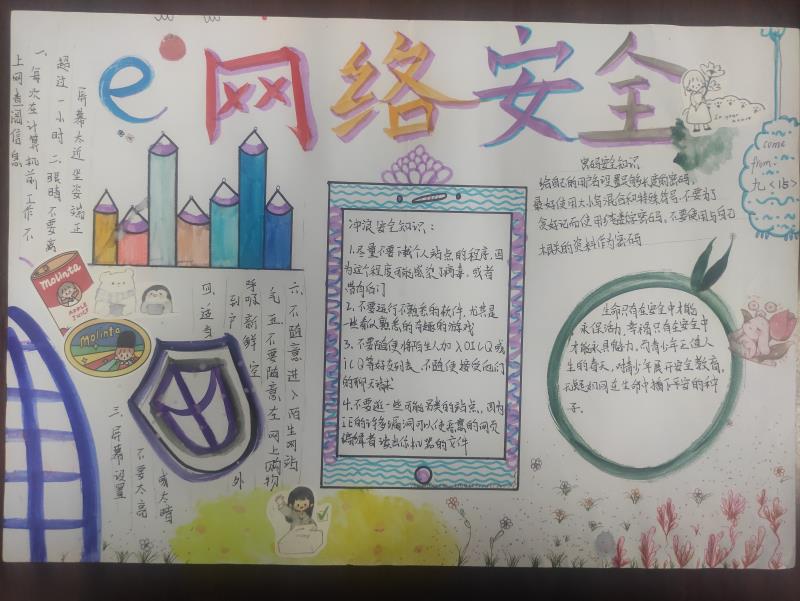 e网络安全
一、每次在计算机前工作不
超过一小时 二、眼睛不要离
屏幕太近 坐姿端正
上网查阅信息
三、屏幕设置
不要太亮
或太暗
四、适当
到户外
呼吸新鲜空
六、不随意进入陌生网站
不要随意在网上购物
molinta
APPLE
JUICE
Molinta
冲浪安全知识:
1.尽量不要下载个人站点的程序,因
为这个程序可能感染了病毒,或者
带有后门
2.不要运行不熟悉的软件,尤其是
一些看似熟悉的有趣的游戏
3.不要随便将陌生人加入OICQ或
ICQ等好友列表,不随便接受他们
的聊天请求
4.不要逛一些可能另类的站点,因为
IE的许多漏洞可以使恶意的网页
编辑者读出你机器的文件
密码安全知识
给自己的用户设置足够长度的密码,
最好使用大小写混合和特殊符号,不要为了
贪好记而使用纯数字密码,不要使用与自己
相关的资料作为密码
come
from:
九<15>
生命只有在安全中才能
永保活力,幸福只有在安全中
才能永具魅力,而青少年正值人
生的春天,对青少年展开安全教育,
无疑如同在生命中播下平安的种
子.